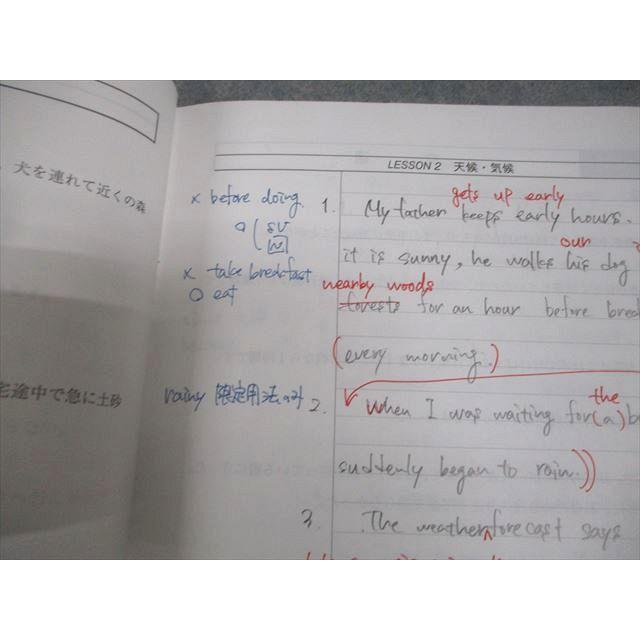 LESSON 2 天候・気候
犬を連れて近くの森
宅途中で急に土砂
× before doing.
○ ( SV
N
× take breakfast
○ eat
rainy 限定用法のみ
gets up early
1. My father keeps early hours.
our
it is sunny, he walks his dog
nearby woods
forests for an hour before brea
(every morning.)
the
2. When I was waiting for (a) b
suddenly began to rain.))
3. The weather forecast says